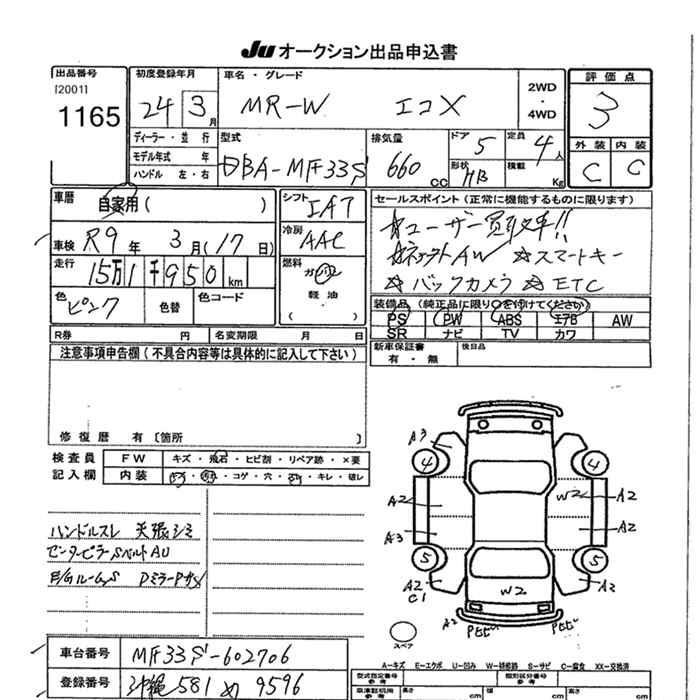 Ju オークション出品申込書
出品番号
[2001]
1165
初度登録年月
24 3 月
車名・グレード
MR-W エコX
2WD
・
4WD
評価点
3
ディーラー・並行
モデル年式 年
ハンドル 左・右
型式
DBA-MF33S
排気量
660 cc
ドア 5
形状 HB
定員 4 人
積載 Kg
外装 内装
C C
車歴
自家用( )
車検 R9 年 3 月(17 日)
走行 15万1千950 km
色 ピンク
色替
色コード
シフト IAT
冷房 AAC
燃料
ガソリン
軽油
( )
セールスポイント(正常に機能するものに限ります)
☆ユーザー買取車!!
AW ☆スマートキー
☆バックカメラ ☆ETC
装備品(純正品に限り○を付けてください)
PS PW ABS エアB AW
SR ナビ TV カワ
R券 円
名変期限 月 日
新車保証書
有・無
後日品
注意事項申告欄(不具合内容等は具体的に記入して下さい)
修復歴 有〔箇所 〕
検査員
記入欄
FW キズ・飛石・ヒビ割・リペア跡・×要
内装 ・コゲ・穴・キレ・破レ
ハンドルスレ 天張シミ
センターピラーSベルトAU
E/GルームS DミラーPサメ
A3
4 4
A2 W2 A2
A3 A2
5 5
A2 C1 W2 A2
A2 Pヒビ Pヒビ
スペア
A-キズ E-エクボ U-凹み W-補修跡 S-サビ C-腐食 XX-交換済
車台番号 MF33S-602706
登録番号 沖縄 581 め 9596
型式指定番号
参考
類別区分番号
参考
車庫証明用
参考
高さ cm
長さ cm
幅 cm